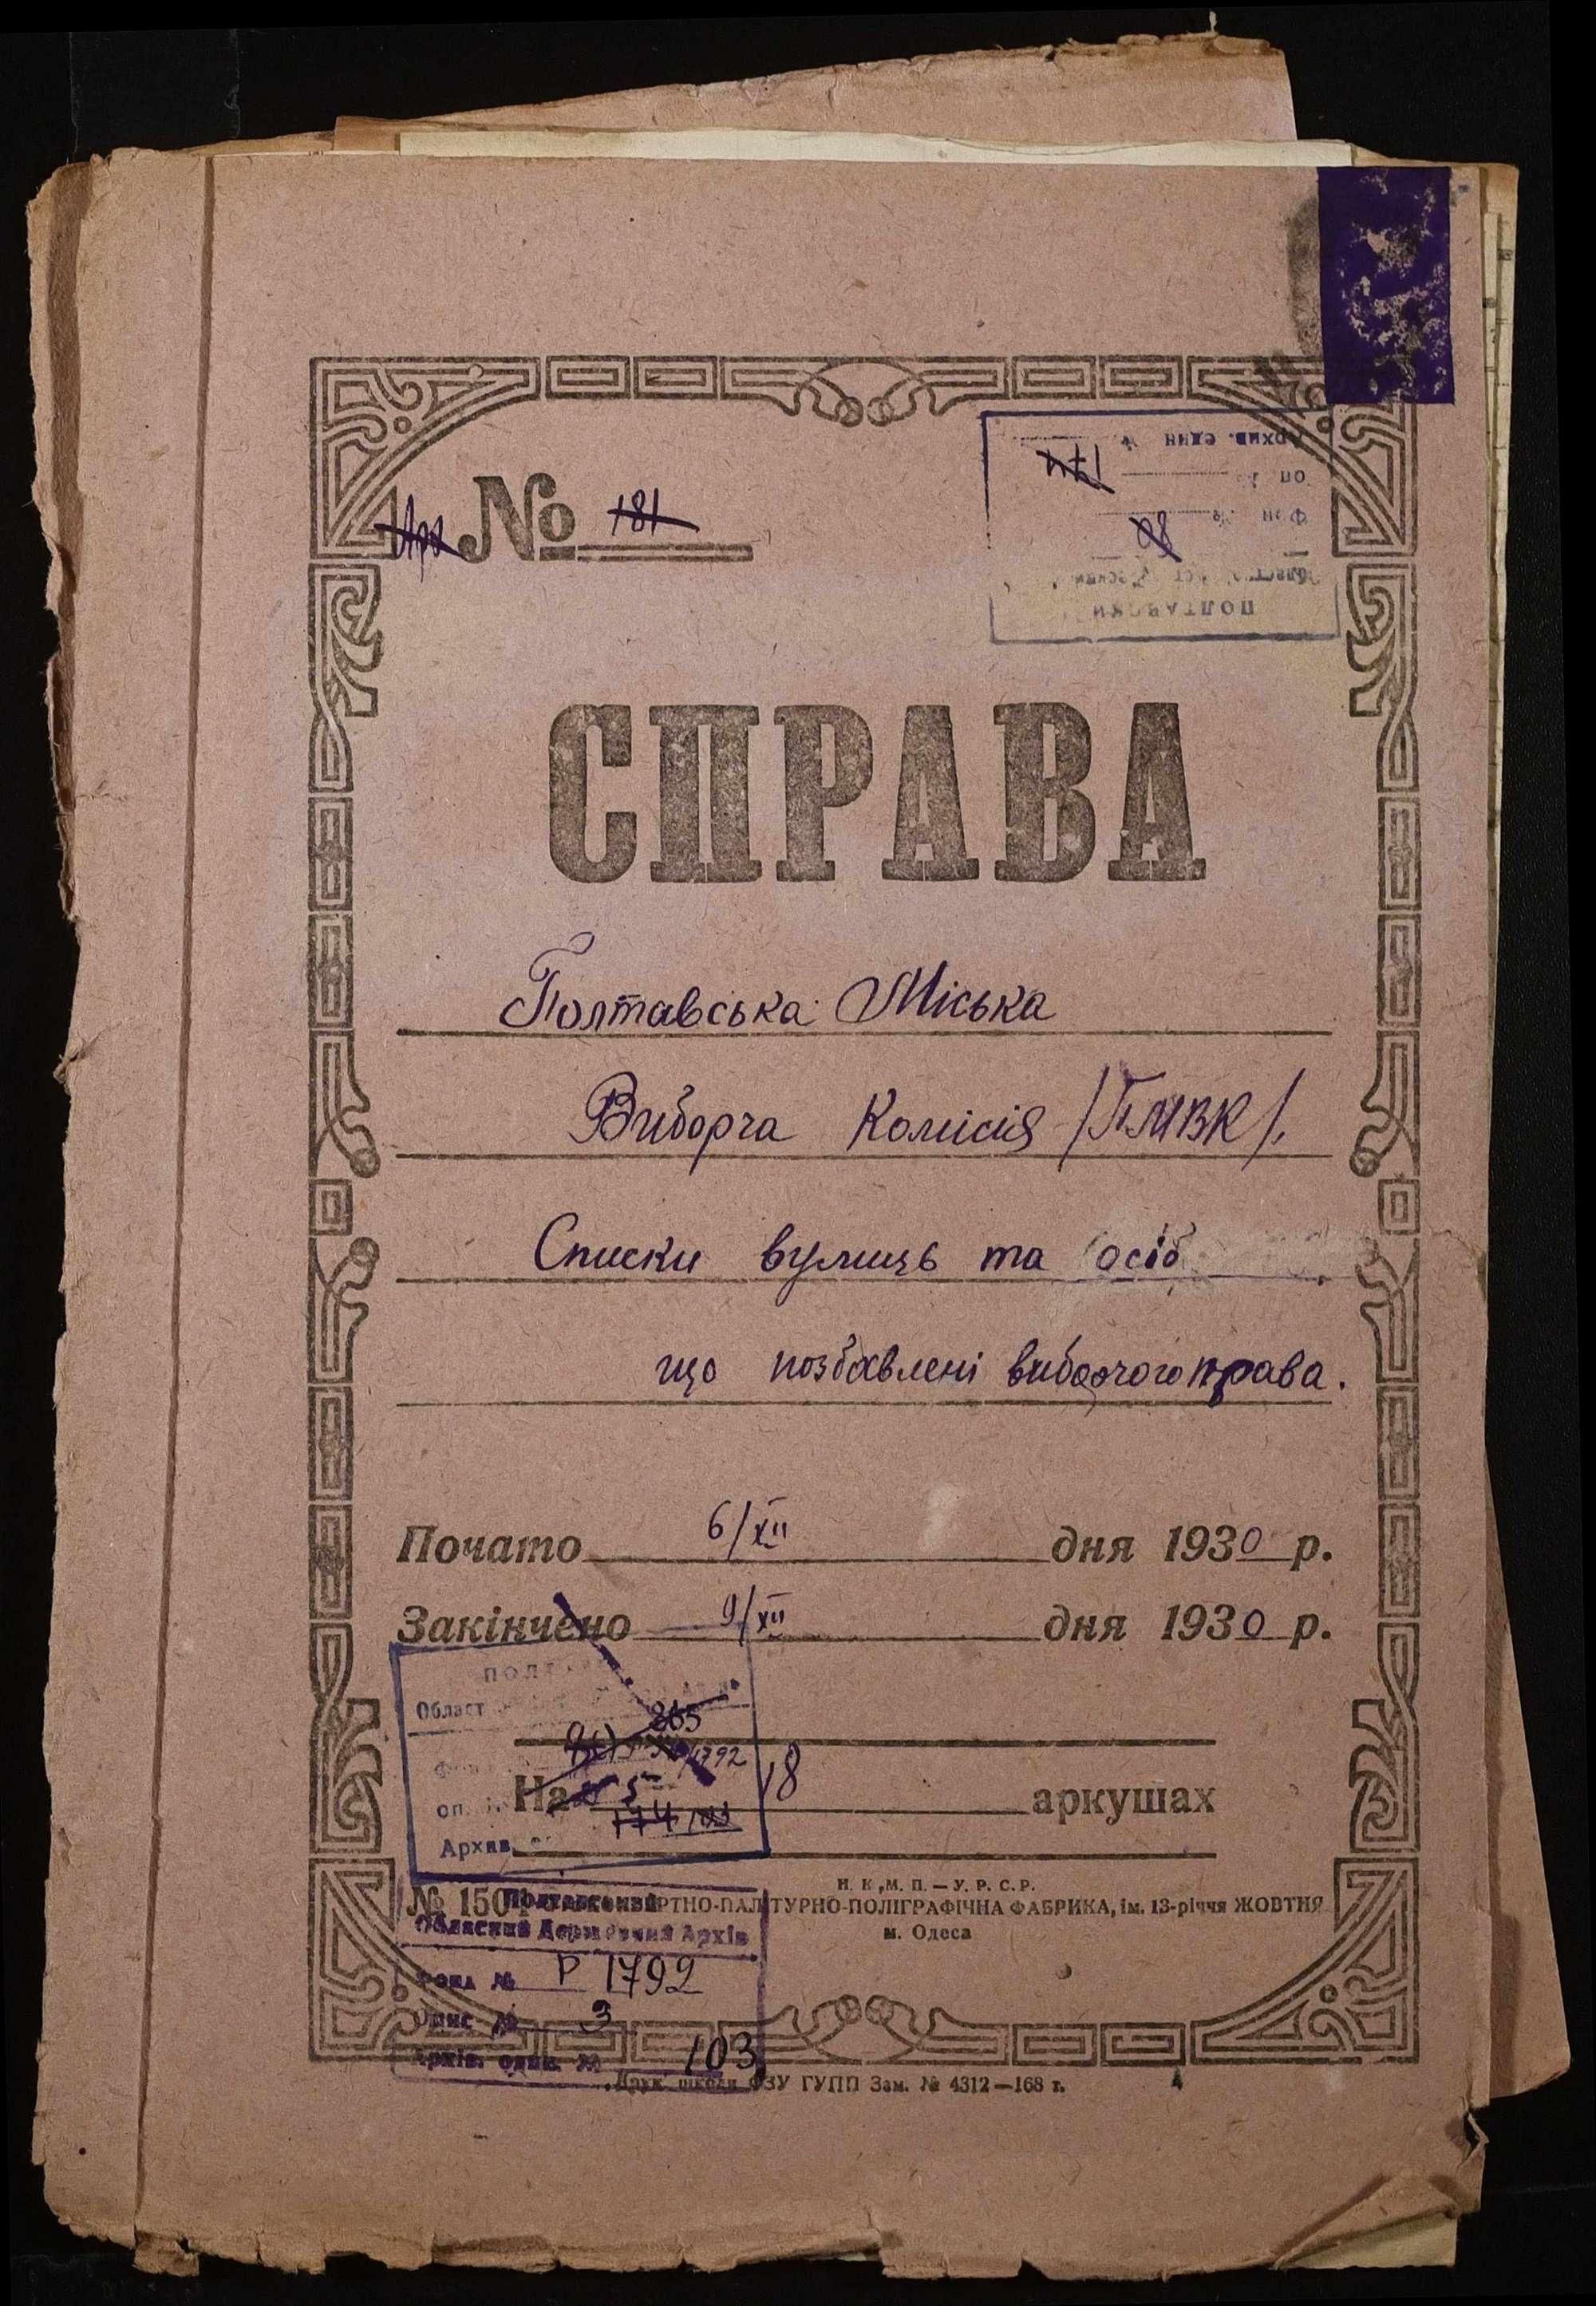 № 181
Архив. един №
оп №
Фон №
98
ПОЛТАВСКИ
СПРАВА
Полтавська Міська
Виборча Комісія /ПМВК/.
Списки вулиць та осіб
що позбавлені виборчого права.
Почато 6/XII дня 1930 р.
Закінчено 9/XII дня 1930 р.
Област
265
1792
На 18 аркушах
оп.
Архив.
Н. К. М. П. — У. Р. С. Р.
№ 150 РТНО-ПАЛІТУРНО-ПОЛІГРАФІЧНА ФАБРИКА, ім. 13-річчя ЖОВТНЯ
м. Одеса
Полтавський
Обласний Державний Архів
Фонд № Р 1792
Опис № 3
Архів. один. № 103
Друк. школи ФЗУ ГУПП Зам. № 4312—168 т.